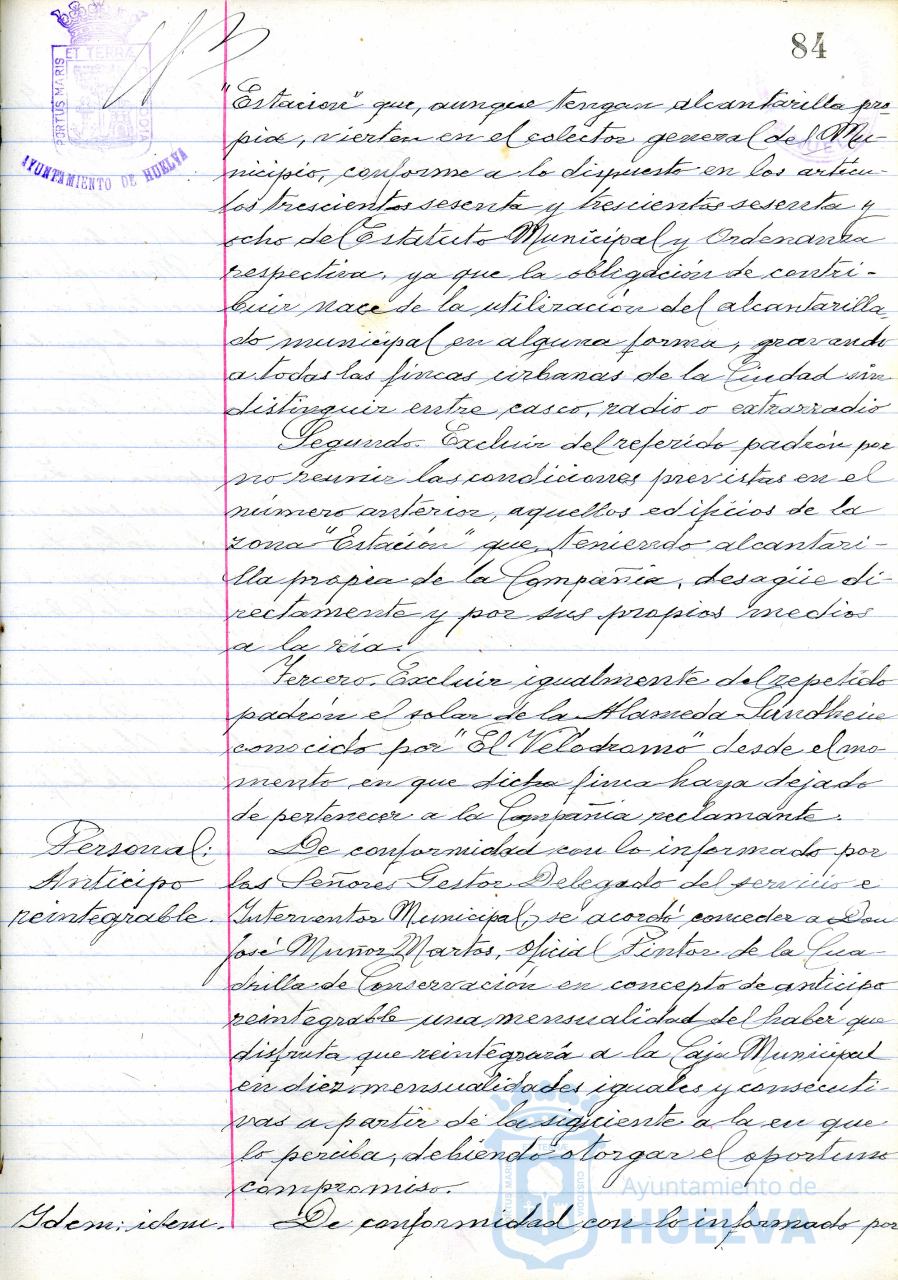 84
PORTUS MARIS ET TERRÆ CUSTODIA
AYUNTAMIENTO DE HUELVA
"Estación" que, aunque tengan alcantarilla pro-
pia, vierten en el colector general del Mu-
nicipio, conforme a lo dispuesto en los artícu-
los trescientos sesenta y trescientos sesenta y
ocho del Estatuto Municipal y Ordenanza
respectiva, ya que la obligación de contri-
buir nace de la utilización del alcantarilla-
do municipal en alguna forma, gravando
a todas las fincas urbanas de la Ciudad sin
distinguir entre casco, radio o extrarradio
Segundo. Excluir del referido padrón por
no reunir las condiciones previstas en el
número anterior, aquellos edificios de la
zona "Estación" que, teniendo alcantari-
lla propia de la Compañía, desagüe di-
rectamente y por sus propios medios
a la ría.
Tercero. Excluir igualmente del repetido
padrón el solar de la Alameda Sundheim
conocido por "El Velódromo" desde el mo-
mento en que dicha finca haya dejado
de pertenecer a la Compañía reclamante.
Personal:
Anticipo
reintegrable.
De conformidad con lo informado por
los Señores Gestor Delegado del servicio e
Interventor Municipal, se acordó conceder a Don
José Muñoz Martos, Oficial Pintor de la Cua-
drilla de Conservación en concepto de anticipo
reintegrable una mensualidad del haber que
disfruta que reintegrará a la Caja Municipal
en diez mensualidades iguales y consecuti-
vas a partir de la siguiente a la en que
lo perciba, debiendo otorgar el oportuno
compromiso.
Idem: idem.
De conformidad con lo informado por
Ayuntamiento de
HUELVA